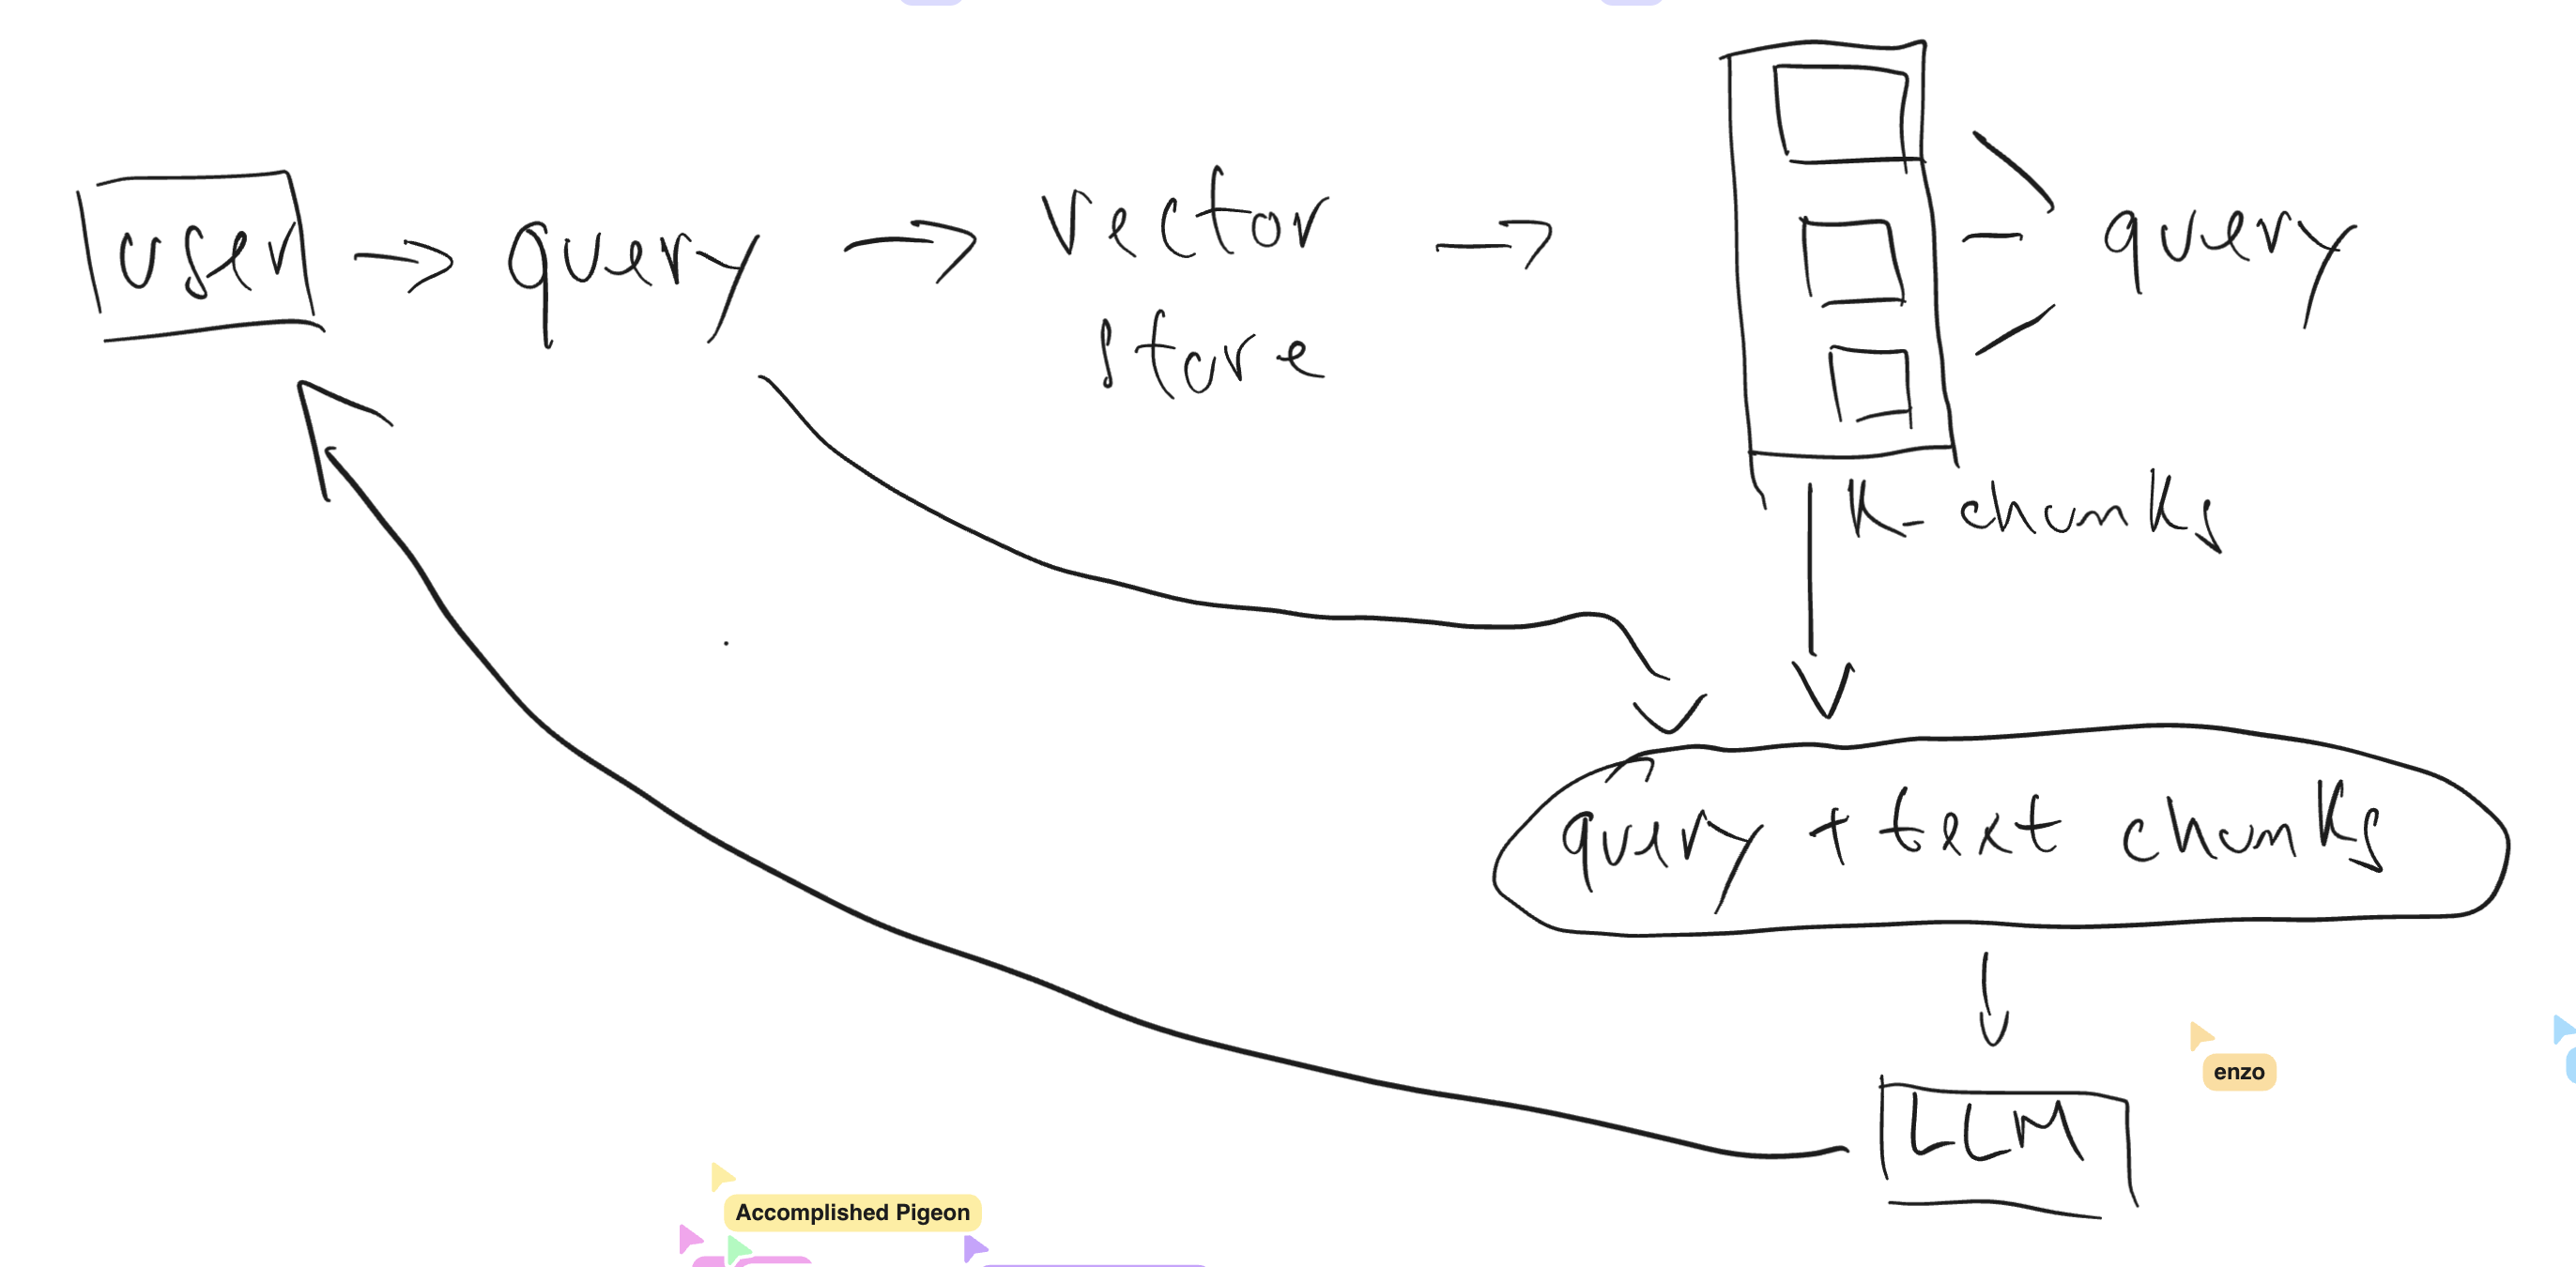 user → query → vector → query
store
K- chunks
query + text chunks
enzo
LLM
Accomplished Pigeon